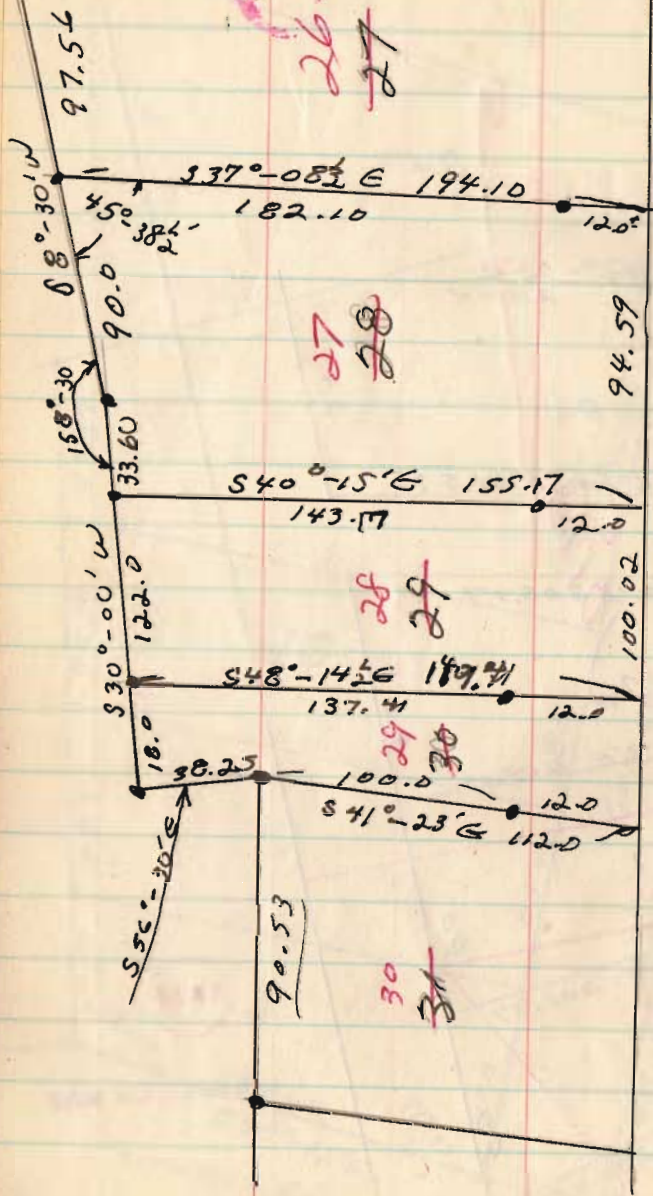 97.56
26
27
S37°-08½ E 194.10
182.10
12.0±
8°-30'W
45°-38½'
90.0
27
28
94.59
158°-30
33.60
S40°-15'E 155.17
143.17
12.0
S30°-00'W
122.0
28
29
100.02
S48°-14½E 149.41
137.41
12.0
18.0
29
30
38.25
100.0
12.0
S41°-23'E 112.0
S56°-30'E
90.53
30
31